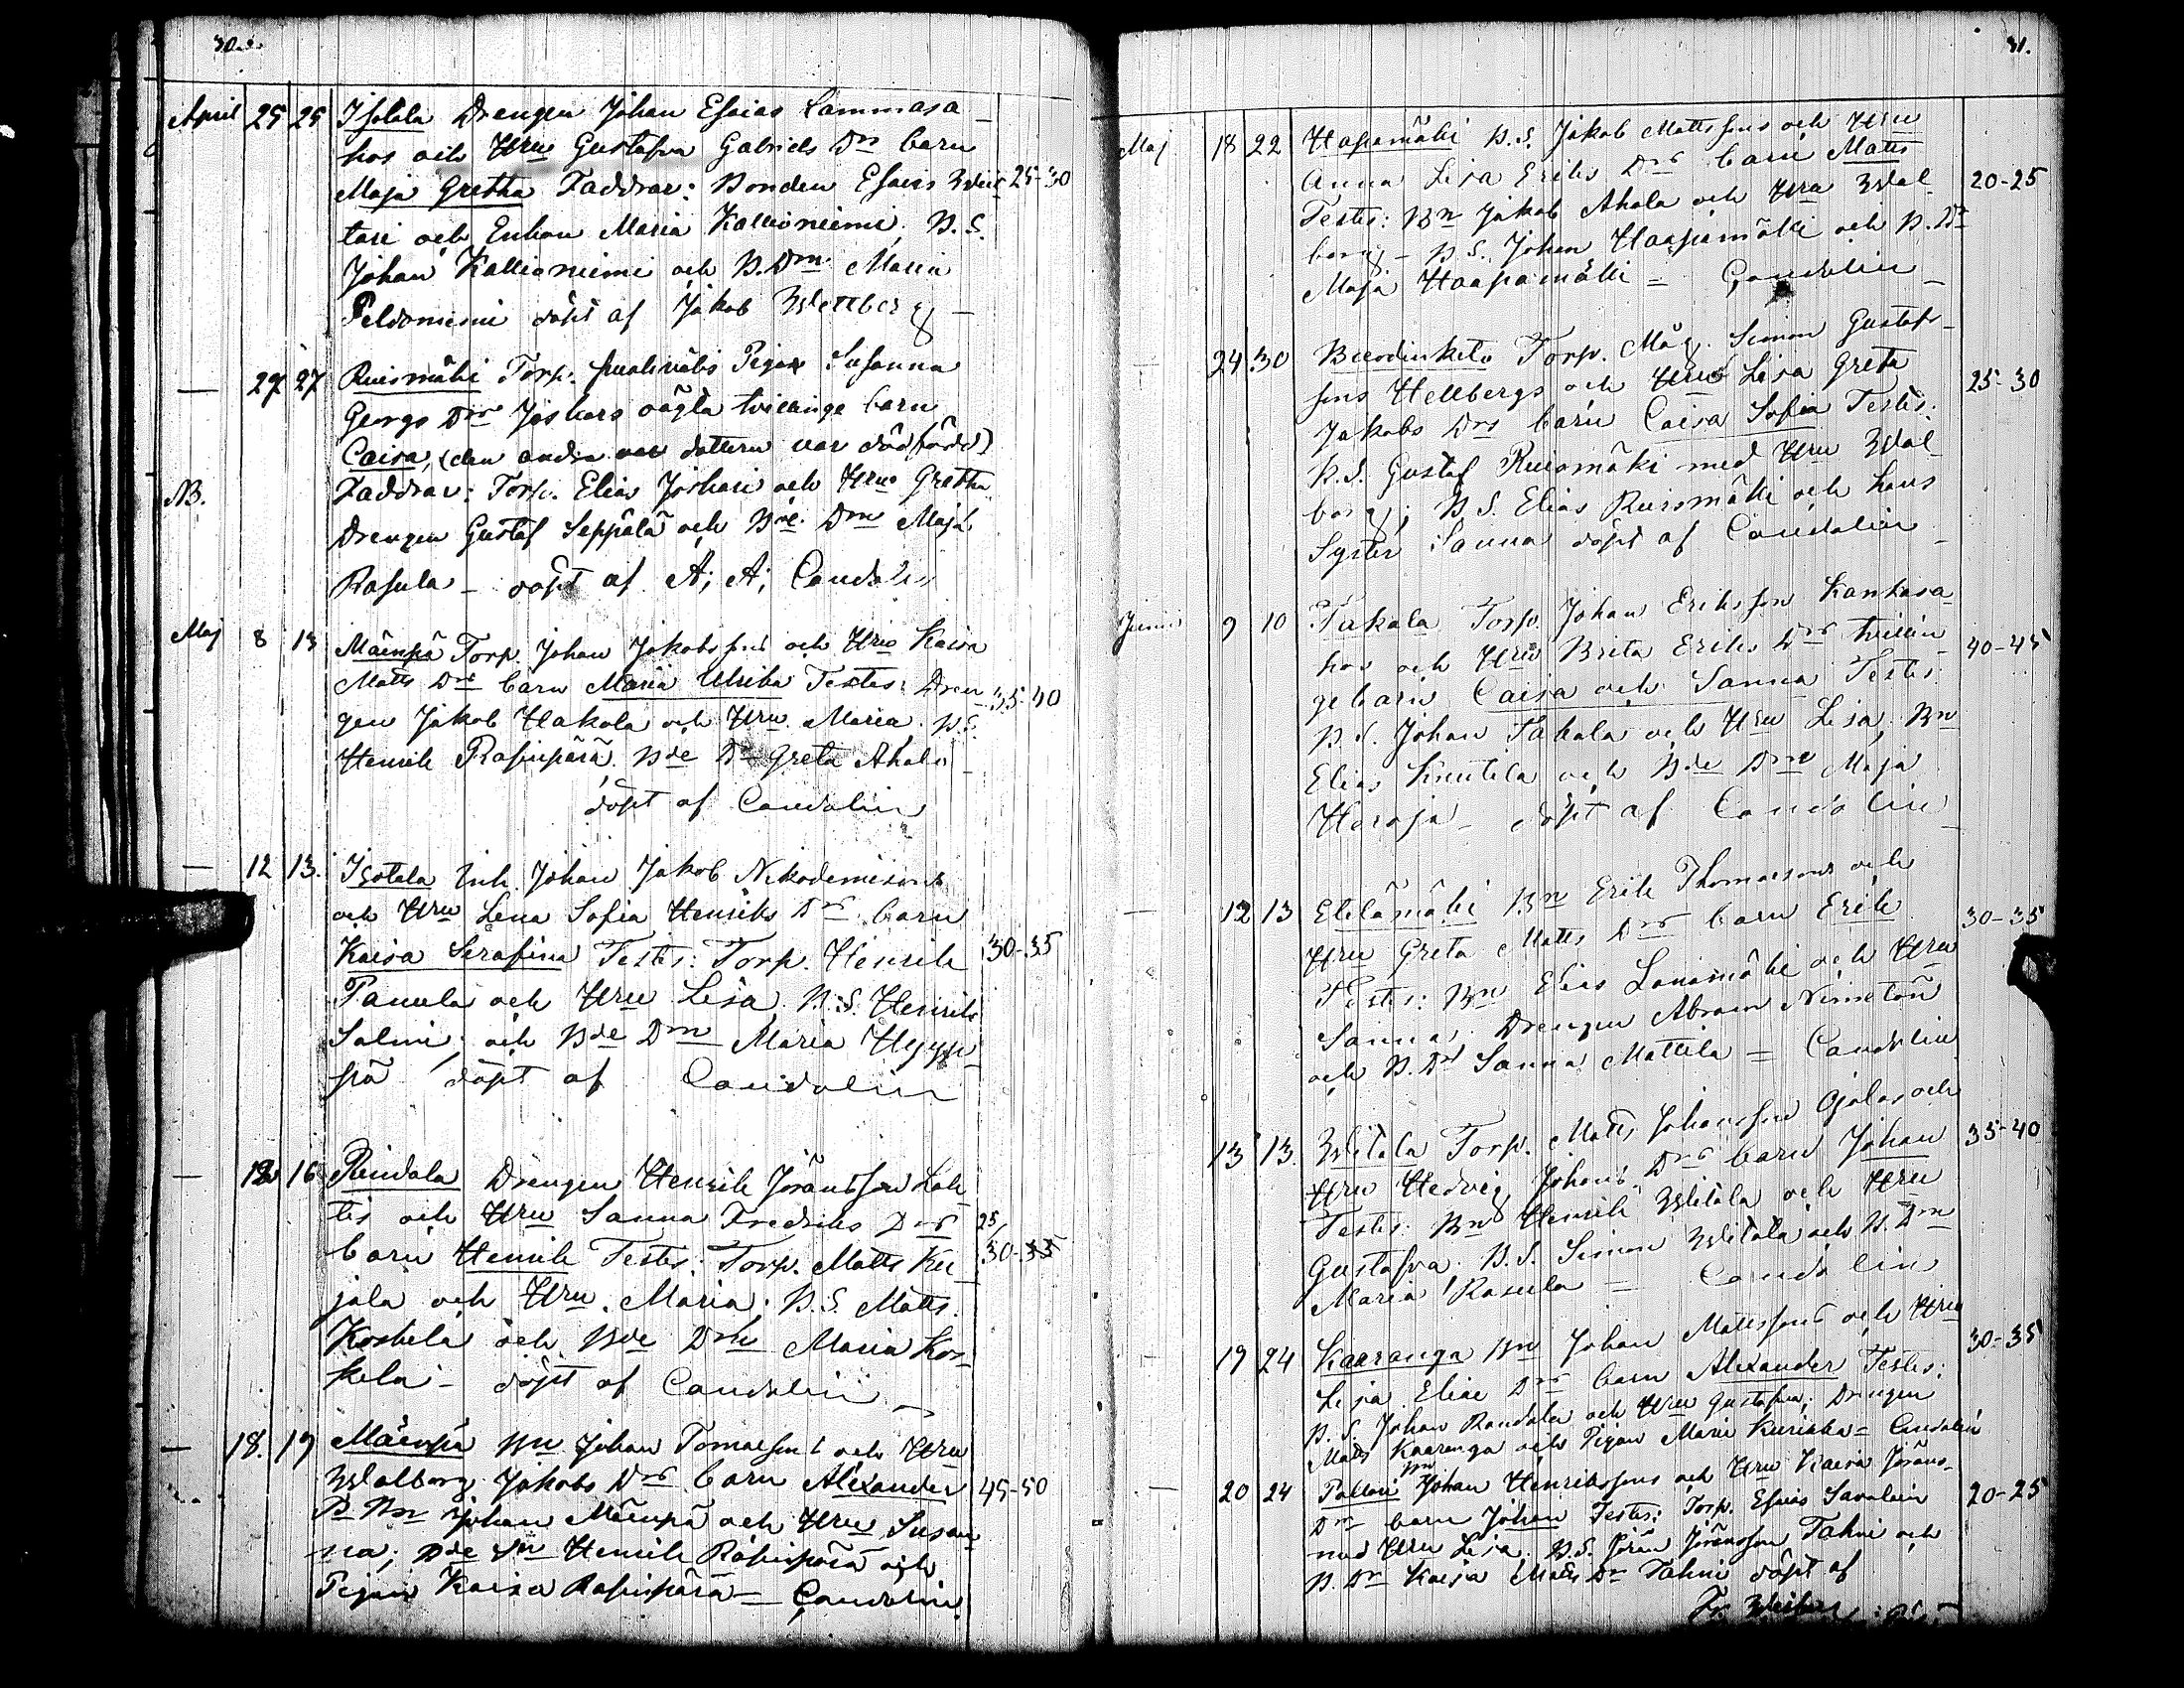 30.
April 25 25 Isotala Drengen Johan Esaias Lammasa
hos och Hru Gustafva Gabriels Dr barn
Maja Gretha Faddrar: Bonden Esaias 25-30
tari och Enkan Maria Kallioniemi, B.S.
Johan Kallioniemi och B.Drn Maria
Peldoniemi döpt af Jakob Wettberg
— 27 27 Ruismäki Torp. Pigan Susanna
Georgs Dr Joskars oägta tvillinge barn
Caisa, (den andra dottern var dödfödd)
NB. Faddrar: Torp. Elias Joskari och Hru Gretha
Drengen Gustaf Seppälä och Bde Drn Maja
Rasula – döpt af A; A; Candolin
Maj 8 13 Mäenpä Torp. Johan Jakobssons och Hru Kaisa
Matts Dr barn Maria Ulrika Testes: Dren 35-40
gen Jakob Hakola och Hru Maria, B.S.
Henrik Rasinperä, Bde Dr Greta Ahola
döpt af Candolin
— 12 13. Isotala Inh. Johan Jakob Nikodemisons
och Hru Lena Sofia Henriks Dr barn
Kaisa Serafina Testes: Torp. Henrik 30-35
Panula och Hru Lisa, B.S. Henrik
Salmi, och Bde Drn Maria Hyyp
pä döpt af Candolin
— 12 16 Rindala Drengen Henrik Jöransson Lah
tis och Hru Sanna Fredriks Dr 25
barn Henrik Testes: Torp. Matts Ku 30-35
jala och Hru Maria; B.S. Matts
Koskela och Bde Drn Maria Kos
kela – döpt af Candolin
— 18. 19 Mäenpä Bn Johan Tomassons och Hru
Walborg Jakobs Dr barn Alexander 45-50
Bn Johan Mäenpä och Hru Susan
na; Bde Sn Henrik Rasinperä och
Pigan Kaisa Rasinperä = Candolin.
31.
Maj 18 22 Hapamäki B.S. Jakob Mattssons och Hru
Anna Lisa Eriks Dr barn Matts 20-25
Testes: Bn Jakob Ahola och Hru Wal
borg – B.S. Johan Haapamäki och B.Dr
Maja Haapamäki = Candolin
— 24 30 Torp. Måg. Simon Gustafs
sons Hellbergs och Hru Lisa Greta 25-30
Jakobs Drs barn Caisa Sofia Testes:
B.S. Gustaf Ruismäki med Hru Wal
borg; B.S. Elias Ruismäki och hans
Syster Sanna döpt af Candolin
Junii 9 10 Takala Torp. Johan Eriksson Kankasa
hos och Hru Brita Eriks Dr tvillin 40-45
ge barn Caisa och Sanna Testes:
B.S. Johan Takala och Hru Lisa, Bn
Elias Knutila och Bde Drn Maja
Heroja – döpt af Candolin
— 12 13 Elilämäki Bn Erik Thomassons och
Hru Greta Matts Dr barn Erik 30-35
Testes: Bn Elias Lanamäki och Hru
Sanna, Drengen Abram Nimetön
och B.Dr Sanna Mattila = Candolin
13 13. Witala Torp. Matts Johansson Ojalas och
Hru Hedvig Johans Dr barn Johan 35-40
Testes: Bn Henrik Witala och Hru
Gustafva. B.S. Simon Witala och B.Drn
Maria Rasula = Candolin
— 19 24 Kaaranga Bn Johan Mattssons och Hru 30-35
Lisa Elias Dr barn Alexander Testes:
B.S. Johan Randala och Hru Gustafva; Drengen
Matts Kaaranga och Pigan Maria Kuriska = Candolin
— 20 24 Pallari Bn Johan Henrikssons och Hru Kaisa Jörans 20-25
Dr barn Johan Testes: Torp. Esaias Savolain
med Hru Lisa. B.S. Jöran Jöransson Tahni och
B.Dr Kaisa Matts Dr Tahni döpt af
Fr.